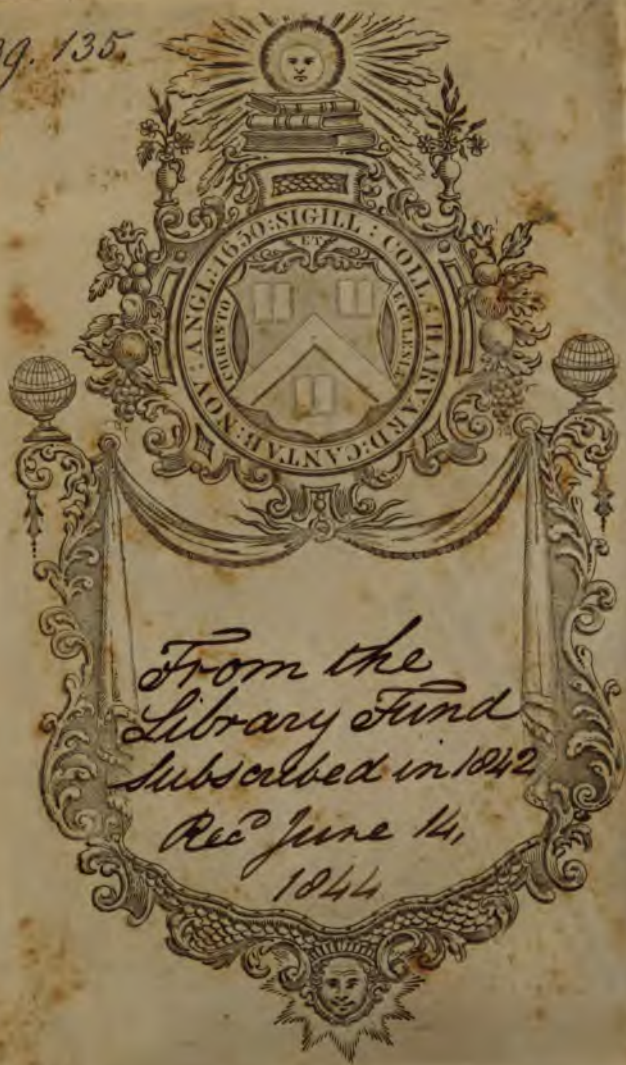 135.
SIGILL : COLL : HARVARD : CANTAB : NOV : ANGL : 1650 :
CHRISTO ET ECCLESIÆ
From the
Library Fund
Subscribed in 1842
Recd June 14,
1844